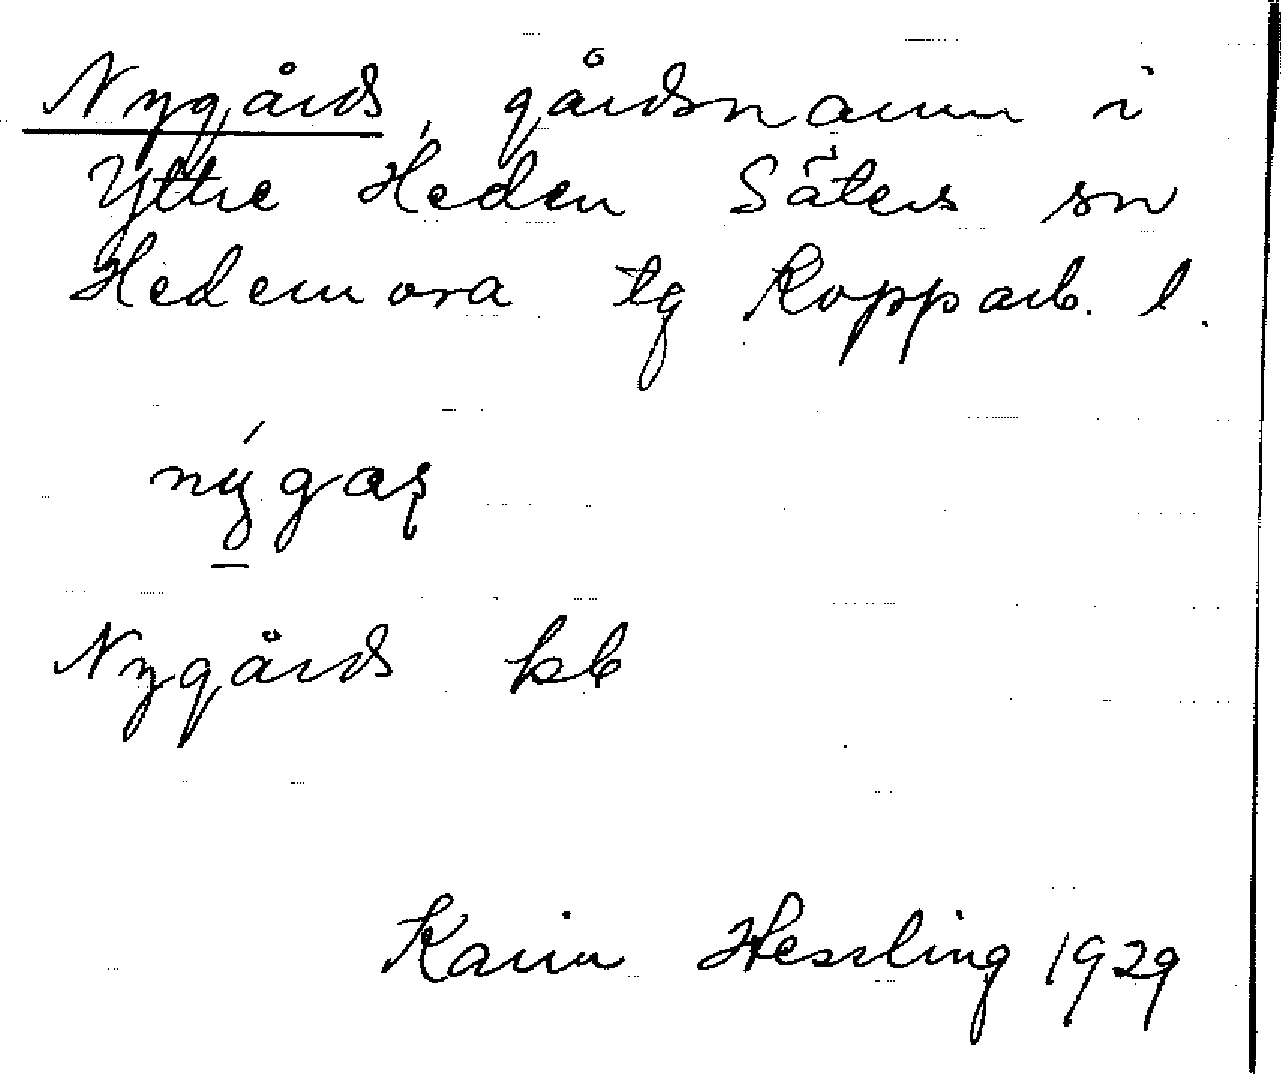 Nygårds, gårdsnamn i
Yttre Heden Säters sn
Hedemora tg Kopparb. l.
nýgaș
Nygårds kb
Karin Hessling 1929